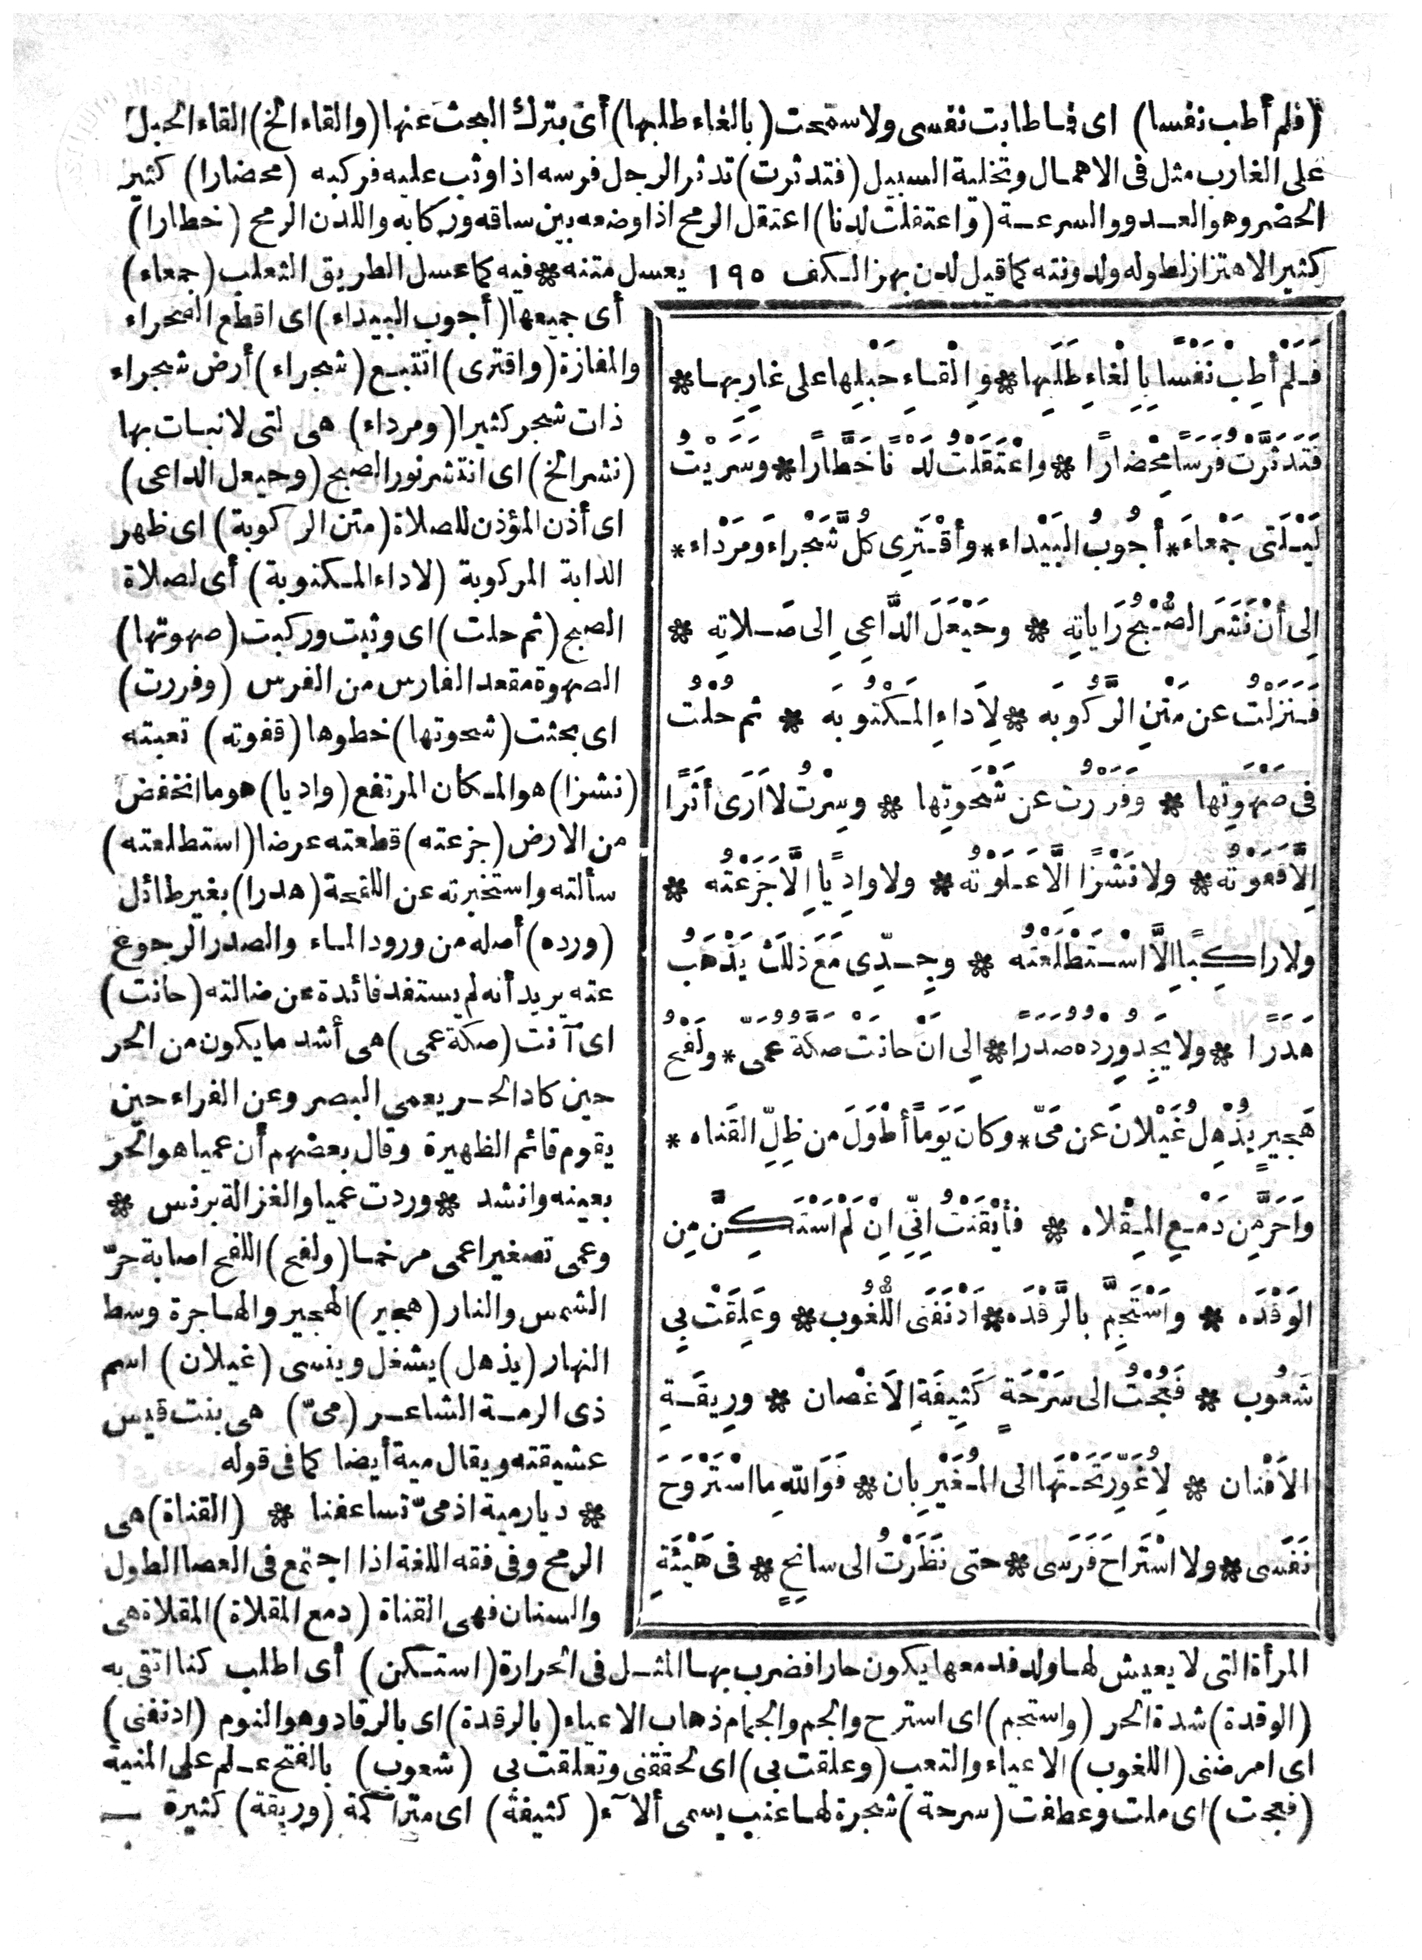 (فلم أطب نفسا) اى فما طابت نفسى ولا سمحت (بالغاء طلبها) أى بترك البحث عنها (والقاء الخ) القاء الحبل
على الغارب مثل فى الاهمال وتخلية السبيل (فتدثرت) تدثر الرجل فرسه اذا وثب عليه فركبه (محضارا) كثير
الحضر وهو العدو والسرعة (واعتقلت لدنا) اعتقل الرمح اذا وضعه بين ساقه وركابه واللدن الرمح (خطارا)
كثير الاهتزاز لطوله ولدونته كما قيل لدن بهز الكف ١٩٥ يعسل متنه * فيه كما عسل الطريق الثعلب (جمعاء)
أى جميعها (أجوب البيداء) اى اقطع الصحراء
والمفازة (واقترى) اتتبع (شجراء) أرض شجراء
ذات شجر كثيرا (ومرداء) هى لتى لا نبات بها
(نشر الخ) اى انتشر نور الصبح (وحيعل الداعى)
اى أذن المؤذن للصلاة (متن الركوبة) اى ظهر
الدابة المركوبة (لاداء المكتوبة) أى لصلاة
الصبح (ثم حلت) اى وثبت وركبت (صهوتها)
الصهوة مقعد الفارس من الفرس (وفررت)
اى بحثت (شحوتها) خطوها (قفوته) تعبته
(نشزا) هو المكان المرتفع (واديا) هو ما انخفض
من الارض (جزعته) قطعته عرضا (استطلعته)
سألته واستخبرته عن اللقحة (هدرا) بغير طائل
(ورده) أصله من ورود الماء والصدر الرجوع
عنه يريد أنه لم يستفد فائدة عن ضالته (حانت)
اى آنت (صكة عمى) هى أشد ما يكون من الحر
حين كاد الحر يعمى البصر وعن الفراء حين
يقوم قائم الظهيرة وقال بعضهم أن عميا هو الحر
بعينه وانشد * وردت عميا والغزالة برنس *
وعمى تصغير اعمى مرخما (ولفح) اللفح اصابة حرّ
الشمس والنار (هجير) الهجير والهاجرة وسط
النهار (يذهل) يشغل وينسى (غيلان) اسم
ذى الرمة الشاعر (مىّ) هى بنت قيس
عشيقته ويقال مية أيضا كما فى قوله
* ديار مية اذ مىّ تساعفنا * (القناة) هى
الرمح وفى فقه اللغة اذا اجتمع فى العصا الطول
والسنان فهى القناة (دمع المقلاة) المقلاة هى
فَلَمْ أَطِبْ نَفْسًا بِاِلْغاءِ طَلَبِها * وِاِلْقاءِ حَبْلِها على غارِبِها *
فَتَدَثَّرْتُ فَرَسًا مِحْضارًا * واعْتَقَلْتُ لَدْنًا خَطَّارًا * وسَرَيْتُ
لَيْلَتى جَمْعاءَ * أجُوبُ البَيْداء * وأقْتَرِى كُلَّ شَجْراءَ ومَرْداء *
اِلى أنْ نَشَرَ الصُّبْحُ رَاياتِهِ * وحَيْعَلَ الدَّاعِى اِلى صَلاتِهِ *
فَنَزَلْتُ عن مَتْنِ الرَّكُوبَه * لِاَداءِ المَكْتُوبَه * ثم حُلْتُ
فى صَهْوَتِها * وفَرَرْتُ عن شَحْوَتِها * وسِرْتُ لا اَرَى أثَرًا
اِلَّا قَفَوْتُه * ولا نَشْزًا اِلَّا عَلَوْتُه * ولا وادِيًا اِلَّا جَزَعْتُه *
ولا راكِبًا اِلَّا اسْتَطْلَعْتُه * وجِدّى مَعَ ذلك يَذْهَبُ
هَدَرًا * ولا يَجِدُ وِرْدُه صَدَرًا * اِلى اَنْ حانَتْ صَكَّةُ عُمَىّ * ولَفْحُ
هَجِيرٍ يُذْهِلُ غَيْلانَ عَن مَىّ * وكان يَوْمًا أطْوَلَ من ظِلِّ القَناه *
واَحَرَّ مِن دَمْعِ المِقْلاه * فأيْقَنْتُ اِنِّى اِنْ لَمْ اَسْتَكِنَّ مِن
الوَقْدَه * واَسْتَجِمَّ بالرَّقْدَه * اَدْنَفَنِى اللُّغُوب * وعَلِقَتْ بِى
شَعُوب * فَعُجْتُ الى سَرْحَةٍ كَثِيفَةِ الاَغْصان * ورِيقَةِ
الاَفْنان * لِاُغَوِّرَ تَحْتَها الى المُغَيْرِبان * فَوَاللهِ ما اسْتَرْوَحَ
نَفَسى * ولا اسْتَراحَ فَرَسى * حتى نَظَرْتُ الى سانِحٍ * فى هَيْئَةِ
المرأة التى لا يعيش لها ولد فدمعها يكون حارا فضرب بها المثل فى الحرارة (استكن) أى اطلب كنا اتقى به
(الوقدة) شدة الحر (واستجم) اى استرح والجم والجمام ذهاب الاعياء (بالرقدة) اى بالرقاد وهو النوم (ادنفنى)
اى امرضنى (اللغوب) الاعياء والتعب (وعلقت بى) اى لحقتنى وتعلقت بى (شعوب) بالفتح علم على المنية
(فعجت) اى ملت وعطفت (سرحة) شجرة لها عنب يسمى ألاآء (كثيفة) اى متراكمة (وريقة) كثيرة